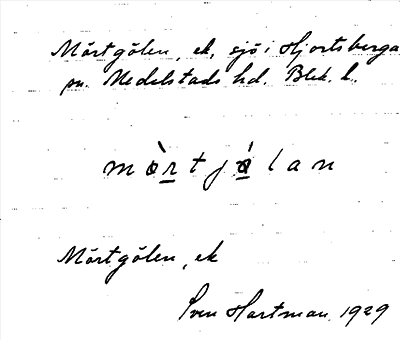 Mörtgölen, ek, sjö i Hjortsberga
sn. Medelstads hd. Blek. l.
mòrtjólan
Mörtgölen, ek
Sven Hartman 1929